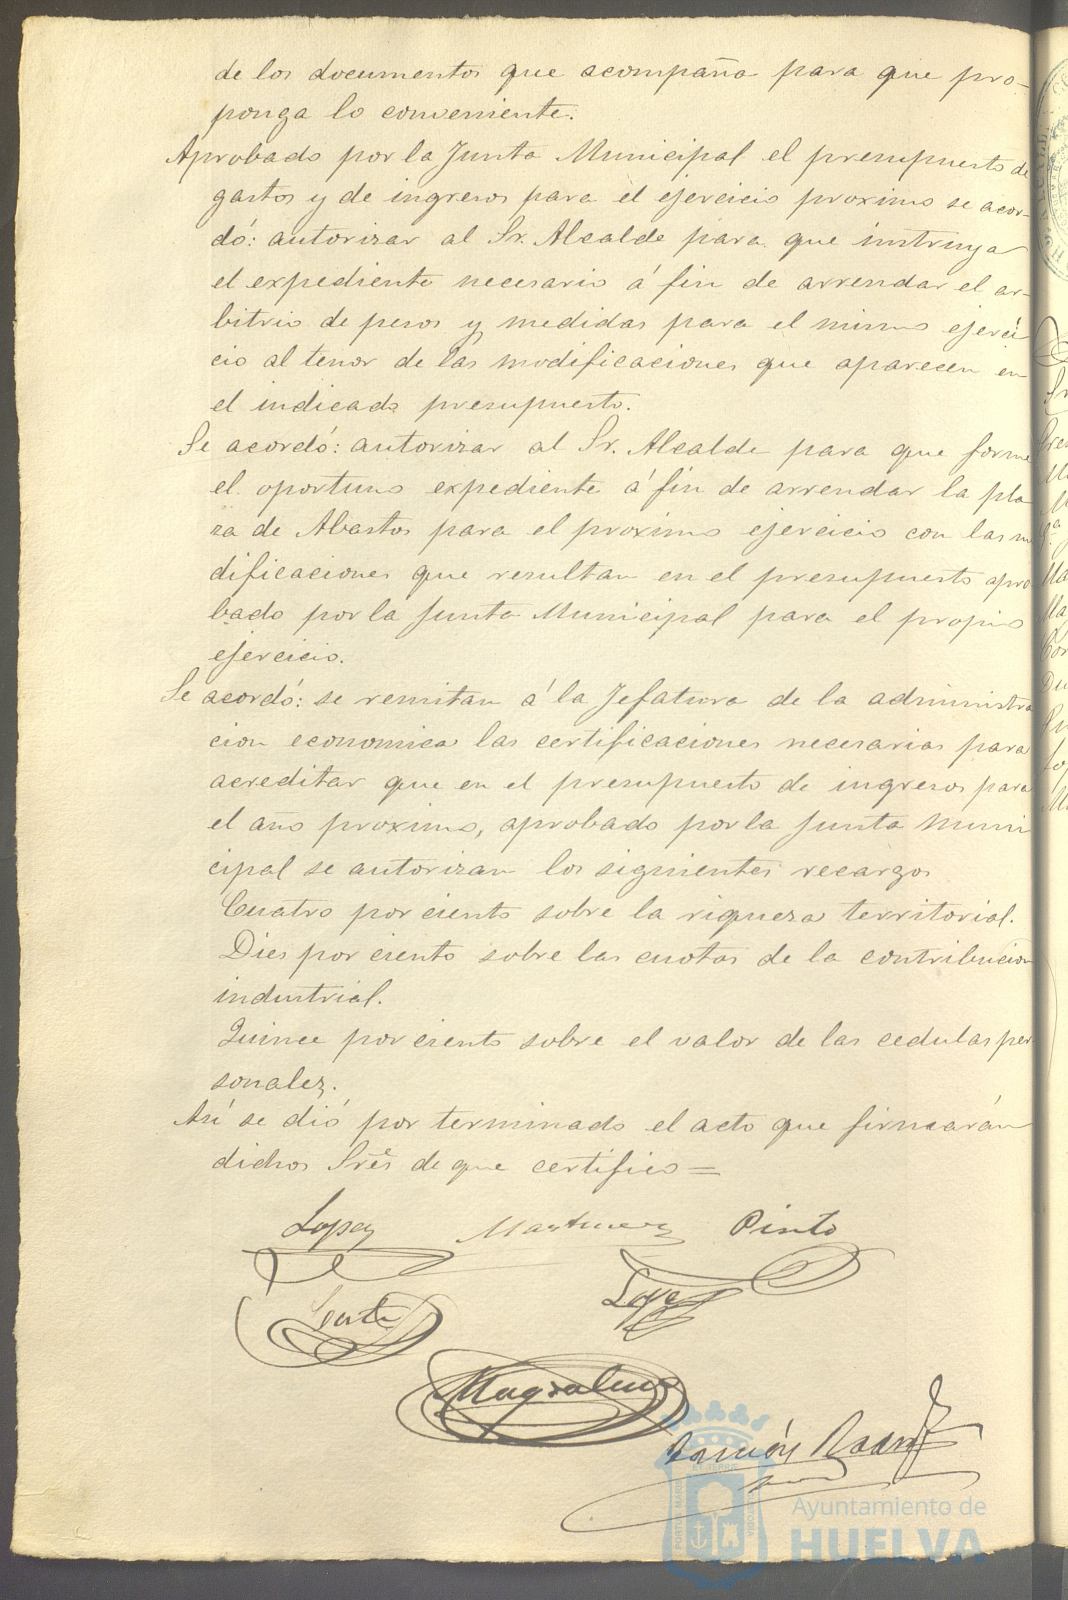 de los documentos que acompaña para que pro-
ponga lo conveniente.
Aprobado por la Junta Municipal el presupuesto de
gastos y de ingresos para el ejercicio proximo se acor-
dó: autorizar al Sr. Alcalde para que instruya
el expediente necesario á fin de arrendar el ar-
bitrio de pesos y medidas para el mismo ejerci
cio al tenor de las modificaciones que aparecen en
el indicado presupuesto.
Se acordó: autorizar al Sr. Alcalde para que forme
el oportuno expediente á fin de arrendar la pla
za de Abastos para el proximo ejercicio con las mo
dificaciones que resultan en el presupuesto apro
bado por la Junta Municipal para el propio
ejercicio.
Se acordó: se remitan á la Jefatura de la administra
cion economica las certificaciones necesarias para
acreditar que en el presupuesto de ingresos para
el año proximo, aprobado por la Junta Muni
cipal se autorizan los siguientes recargos
Cuatro por ciento sobre la riqueza territorial.
Dies por ciento sobre las cuotas de la contribucion
industrial.
Quince por ciento sobre el valor de las cedulas per
sonales.
Asi se dió por terminado el acto que firmarán
dichos Sres de que certifico=
Lopez Martinez Pinto
Lopez
Magdalena
Ramón
Ayuntamiento de
HUELVA